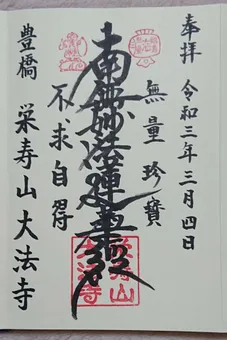 奉拝 令和三年三月四日
無量珍寶
南無妙法蓮華経
不求自得
豊橋 栄寿山大法寺
栄寿山
大法寺